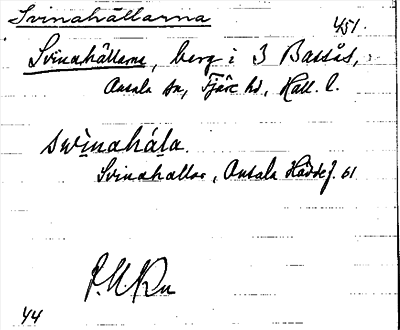 Svinahällarna
451.
Svinahällarne, berg i 3 Bassås,
Onsala sn, Fjäre hd, Hall. l.
swìnahála.
Svinahallar, Onsala Häddef. 61
44